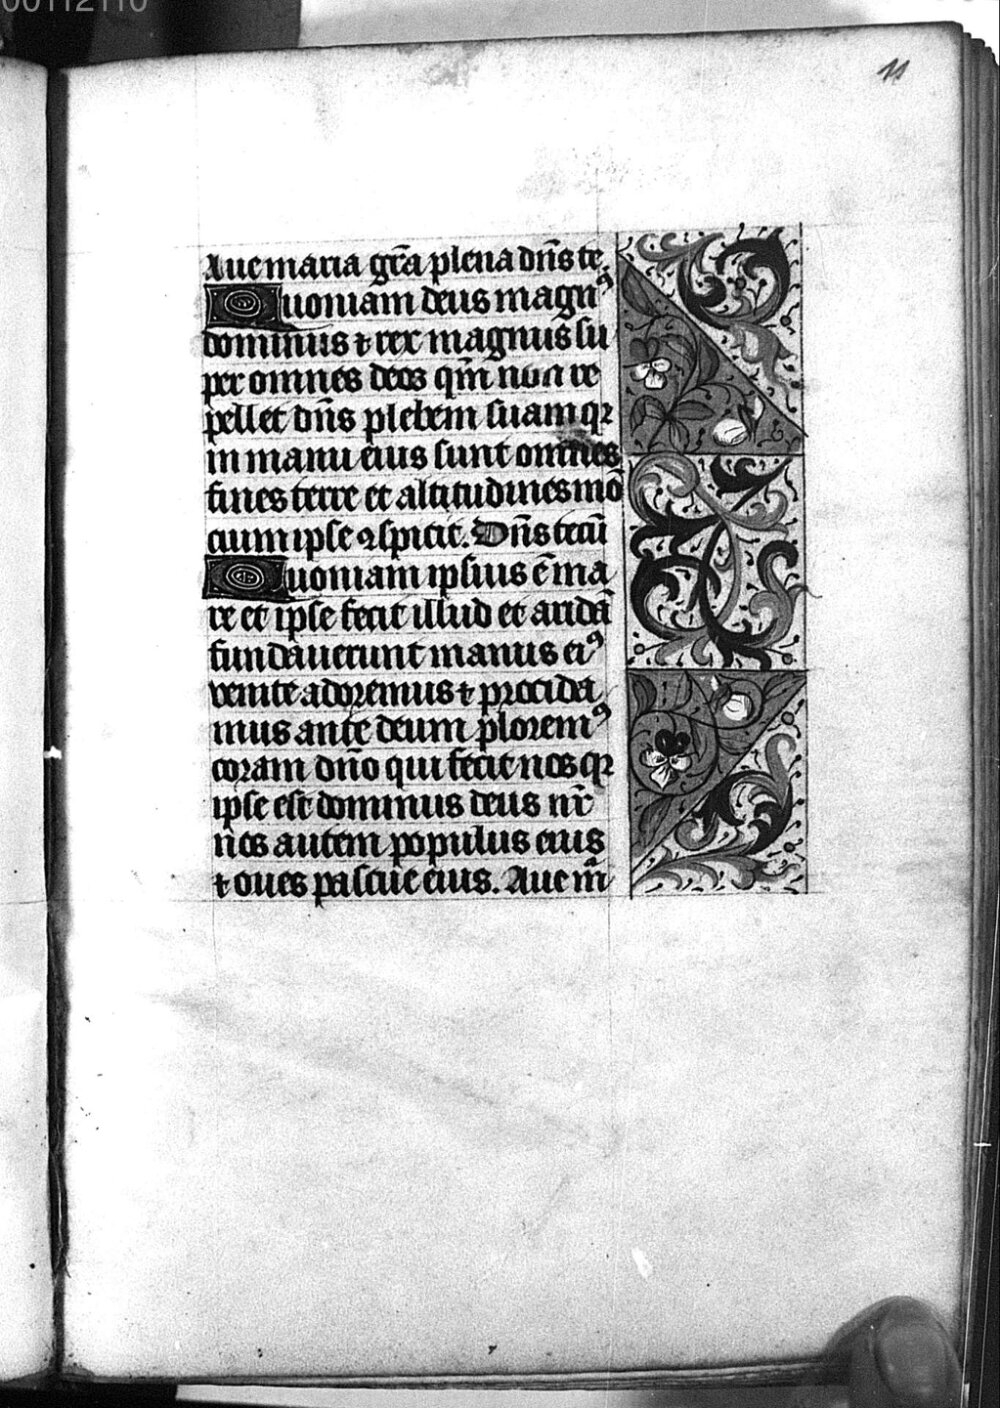 00112110
11
Aue maria gr̃a plena dñs te.
Quoniam deus magnꝰ
dominus ⁊ rex magnus su
per omnes deos qm̃ non re
pellet dñs plebem suam qꝛ
in manu eius sunt omnes
fines terre et altitudines mõ
cium ipse ꝯspicit. Dñs tecũ
Quoniam ipsius ẽ ma
re et ipse fecit illud et aridã
fundauerunt manus eiꝰ
venite adoremus ⁊ procida
mus ante deum ploremꝰ
coram dño qui fecit nos qꝛ
ipse est dominus deus nr̃
nos autem populus eius
⁊ oues pascue eius. Aue mͣ